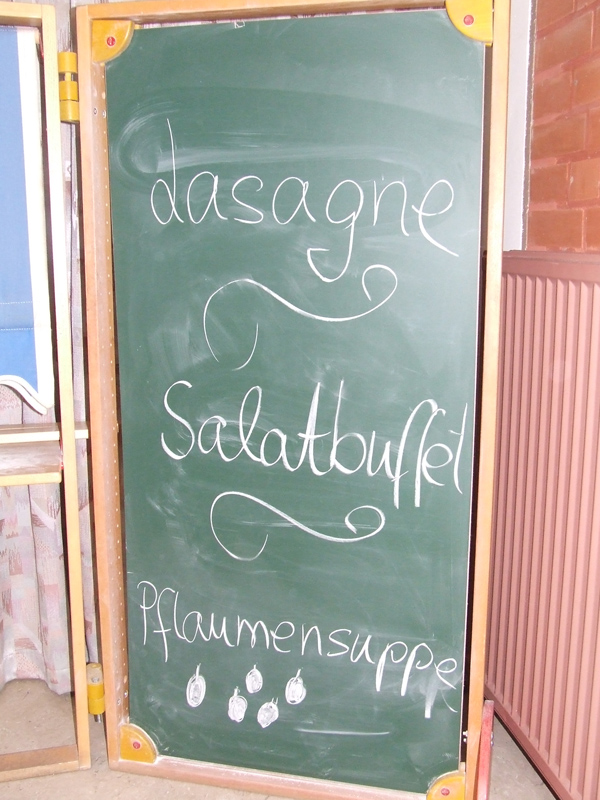 Lasagne
Salatbuffet
Pflaumensuppe